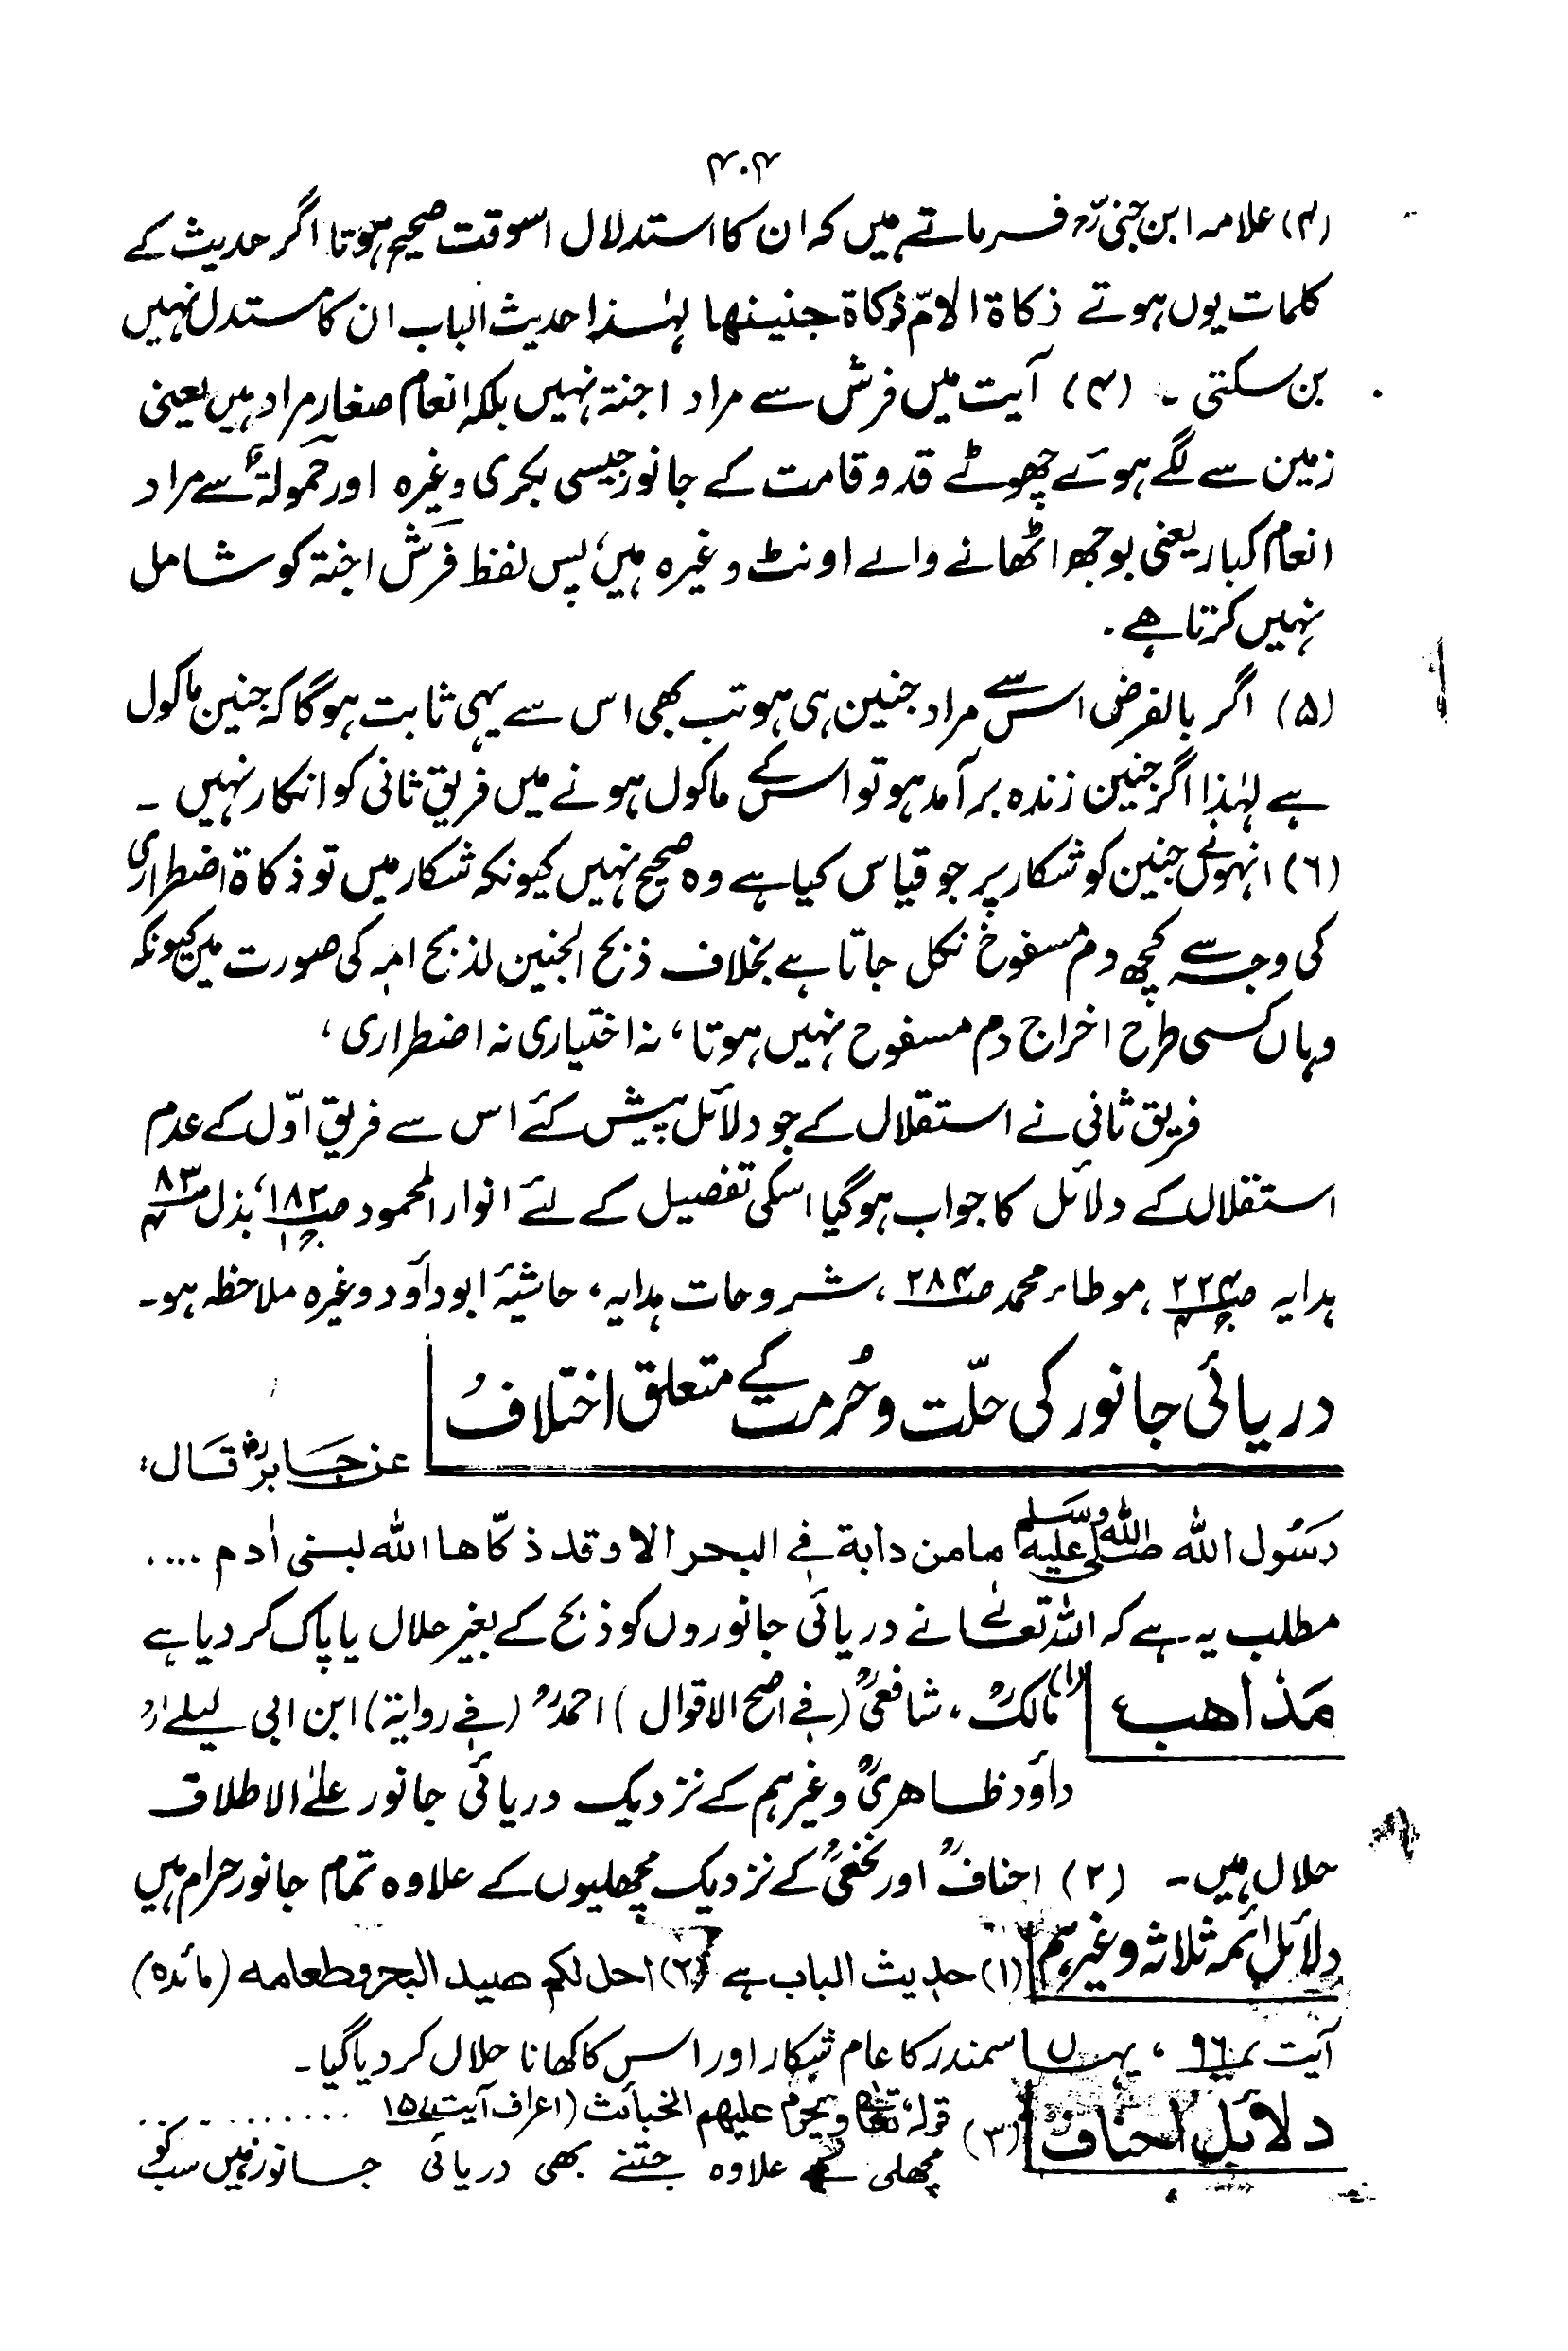 ۴۰۴
(۳) علامہ ابن جنیؒ فرماتے ہیں کہ ان کا استدلال اسوقت صحیح ہوتا اگر حدیث کے
کلمات یوں ہوتے ذکاة الامّ ذکاة جنینها لہٰذا حدیث الباب ان کا مستدل نہیں
بن سکتی ۔ (۴) آیت میں فرش سے مراد اجنۃ نہیں بلکہ انعام صغار مراد ہیں یعنی
زمین سے لگے ہوئے چھوٹے قد و قامت کے جانور جیسی بکری وغیرہ اور حَمولۃً سے مراد
انعام کبار یعنی بوجھ اٹھانے والے اونٹ وغیرہ ہیں، پس لفظ فَرَش اجنۃ کو شامل
نہیں کرتا ہے ۔
(۵) اگر بالفرض اس سے مراد جنین ہی ہو تب بھی اس سے یہی ثابت ہوگا کہ جنین ماکول
ہے لہٰذا اگر جنین زندہ برآمد ہو تو اس کے ماکول ہونے میں فریق ثانی کو انکار نہیں ۔
(٦) انہوں نے جنین کو شکار پر جو قیاس کیا ہے وہ صحیح نہیں کیونکہ شکار میں تو ذکاۃ اضطراری
کی وجہ سے کچھ دم مسفوح نکل جاتا ہے بخلاف ذبح الجنین لذبح امہ کی صورت میں کیونکہ
وہاں کسی طرح اخراج دم مسفوح نہیں ہوتا، نہ اختیاری نہ اضطراری،
فریق ثانی نے استقلال کے جو دلائل پیش کئے اس سے فریق اوّل کے عدم
استقلال کے دلائل کا جواب ہوگیا اسکی تفصیل کے لئے انوار المحمود ص۱۸۲ ج۱، بذل ص۸۳ ج۴
ہدایہ ص۲۲۴ ج۴، موطاء محمد ص۲۸۴، شروحات ہدایہ، حاشیۂ ابوداؤد وغیرہ ملاحظہ ہو۔
دریائی جانور کی حلّت و حُرمت کے متعلق اختلاف
عن جابرؓ قال:
رسُول الله صلی اللہ علیہ وسلم مامن دابة فی البحر الا وقد ذکّاها الله لبنی اٰدم ....
مطلب یہ ہے کہ اللہ تعالیٰ نے دریائی جانوروں کو ذبح کے بغیر حلال یا پاک کردیا ہے
مَذاهب (۱) مالکؒ، شافعیؒ (فی اصح الاقوال) احمدؒ (فی روایة) ابن ابی لیلےٰؒ
داؤد ظاهریؒ وغیرہم کے نزدیک دریائی جانور علےٰ الاطلاق
حلال ہیں۔ (۲) احنافؒ اور نخعیؒ کے نزدیک مچھلیوں کے علاوہ تمام جانور حرام ہیں
دلائل ائمہ ثلاثہ وغیرہم (۱) حدیث الباب ہے (۲) احل لکم صید البحر وطعامه (مائدہ)
آیت ۹٦، یہاں سمندر کا عام شکار اور اس کا کھانا حلال کردیا گیا۔
دلائل احناف (۳) قولہ تعالیٰ ویحرم علیهم الخبائث (اعراف آیت ۱۵۷ ............
مچھلی کے علاوہ جتنے بھی دریائی جانور ہیں سب کو